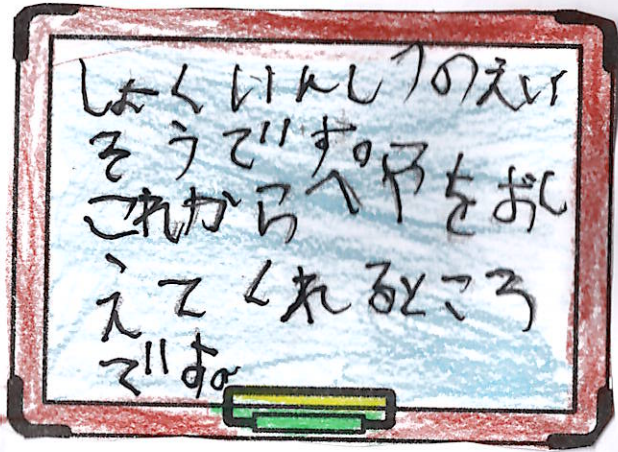 しょくいんしつのえい
そうです。
これからへやをおし
えてくれるところ
です。